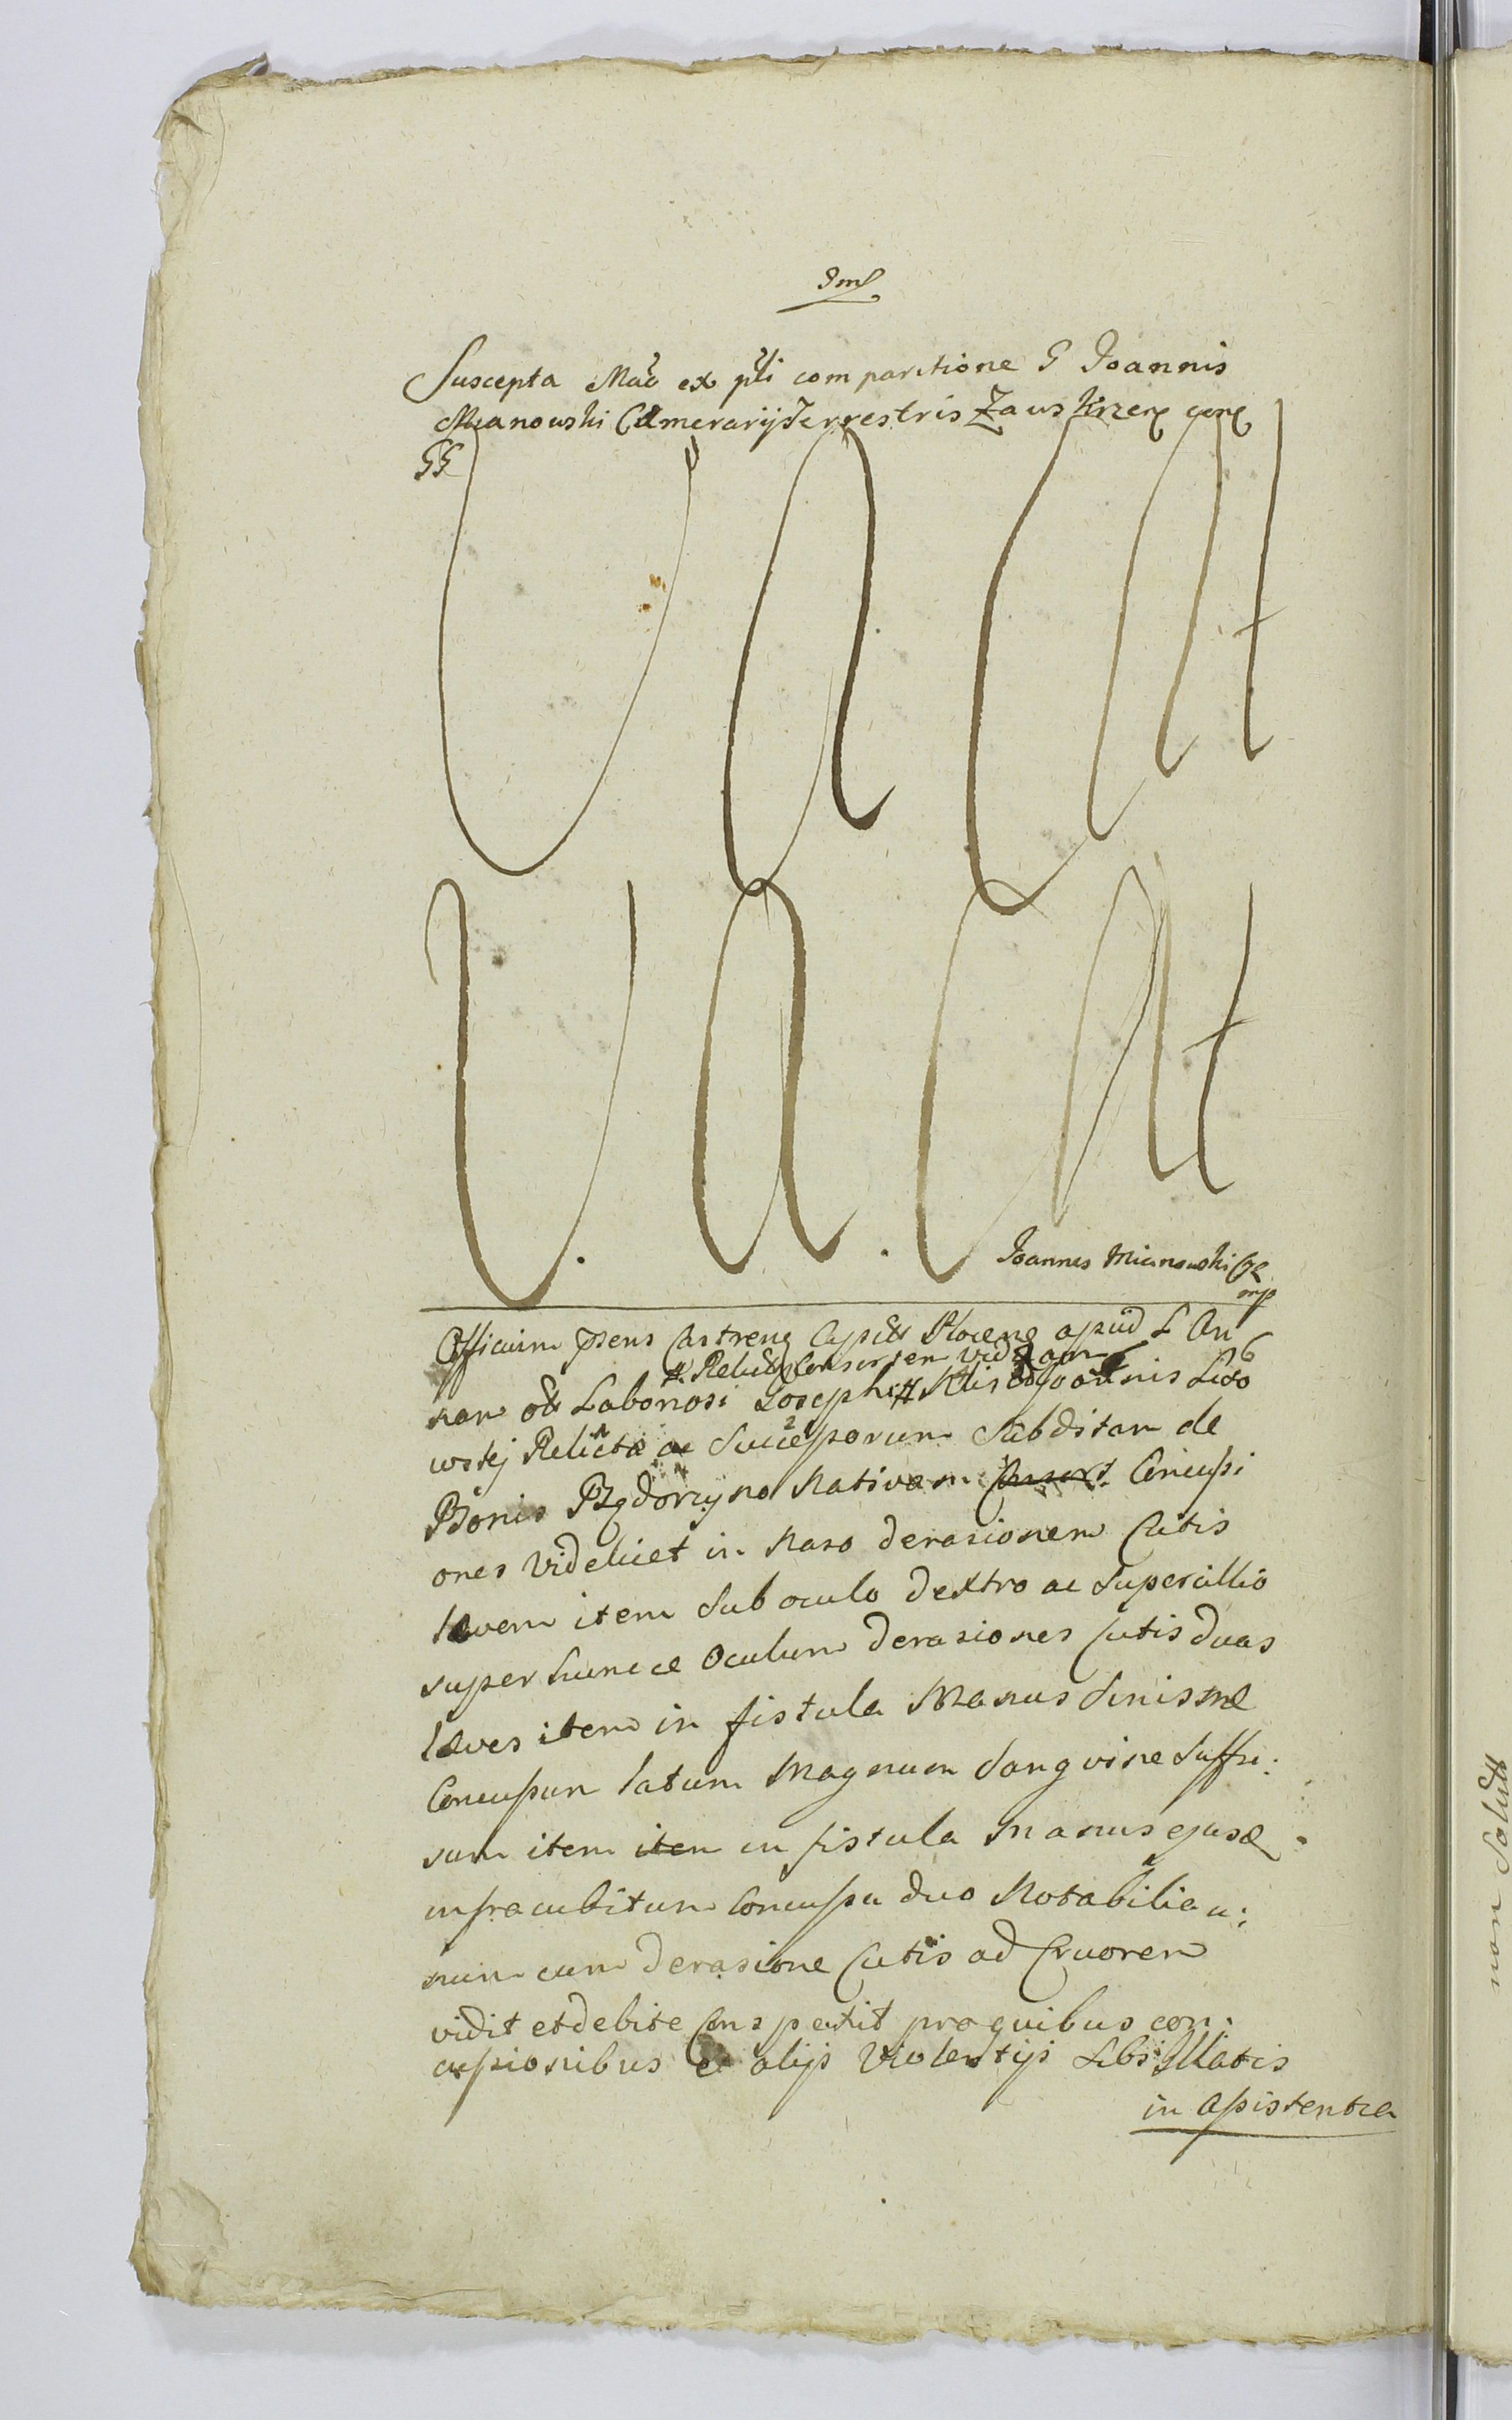 Suscepta ex comparitione G Joannis
Mianowski Camerarij Terrestris Zawskrzen gene
GG
Vacat
Vacat
Joannes Mianowski
mp
Officium Castrense apud L An
nam Laborosi Josephi Joannis
Consortem
Relicta ac Successorum Subditam de
Bonis Nativam Concussi
ones Videlicet in Naso derasionem Cutis
lævem item Sub oculo dextro ac Supercillio
super hunc ce Oculum derasiones Cutis duas
læves item in fistula Manus Sinistræ
Concussum latum Magnum Sangvine Suffu:
sum item item in fistula Manus ejusd
infra cubitum Concussa duo Notabilia u:
num cum derasione Cutis ad Cruorem
vidit et debite Conspexit pro quibus con:
cussionibus et alijs Violentijs Sibi Illatis
in Assistentia
non Solutt